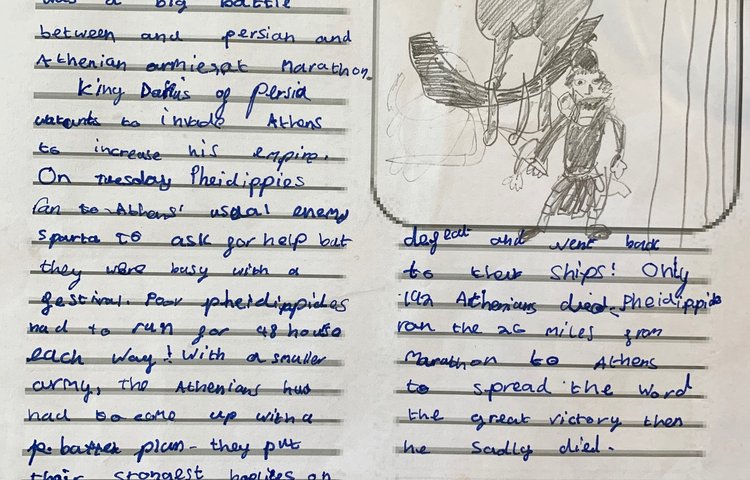 was a big battle
between and persian and
Athenian armiesat Marathon.
King Darius of Persia
to invade Athens
to increase his empire.
On tuesday Pheidippies
ran to Athens' usual enemy
sparta to ask for help but
they were busy with a
festival. Poor pheidippides
had to run for 48 house
each way! With a smaller
army, the Athenians had
had to come up with a
plan- they put
their strongest hoplites on
defeat and went back
to their ships! Only
192 Athenians died. Pheidippide
ran the 26 miles from
Marathon to Athens
to spread the word
the great victory then
he sadly died.